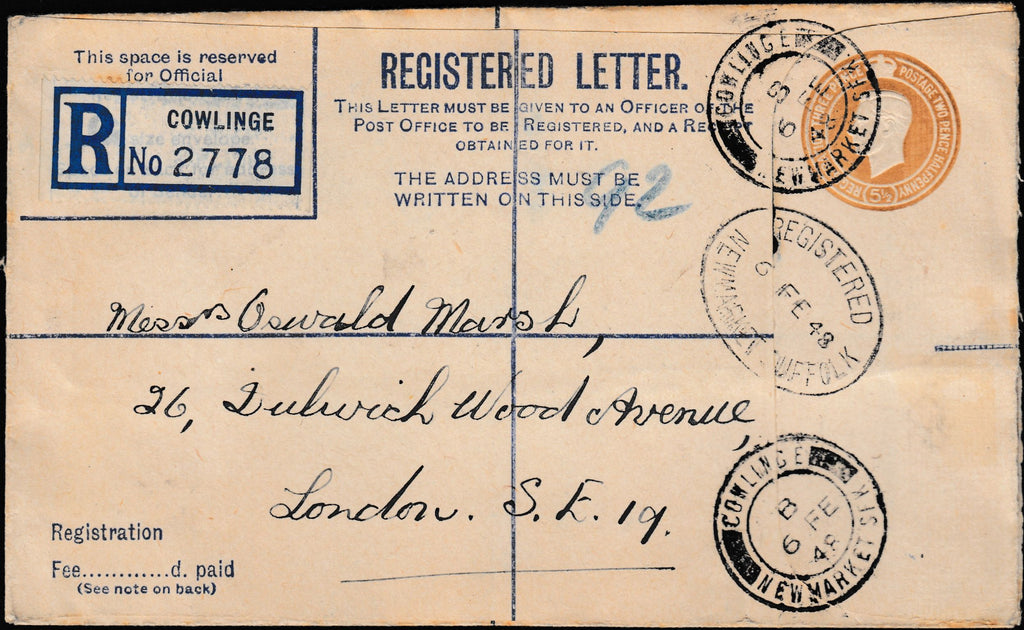 This space is reserved
for Official
R
COWLINGE
No 2778
REGISTERED LETTER.
THIS LETTER MUST BE GIVEN TO AN OFFICER OF THE
POST OFFICE TO BE REGISTERED, AND A RECEIPT
OBTAINED FOR IT.
THE ADDRESS MUST BE
WRITTEN ON THIS SIDE.
92
COWLINGE
NEWMARKET SK
6 FE
48
POSTAGE TWO PENCE HALFPENNY
REGN THREE PENCE
(5½)
REGISTERED
6 FE 48
NEWMARKET SUFFOLK
Messrs Oswald Marsh,
26, Dulwich Wood Avenue,
London. S. E. 19.
Registration
Fee............d. paid
(See note on back)
COWLINGE
B
6 FE
48
NEWMARKET SK